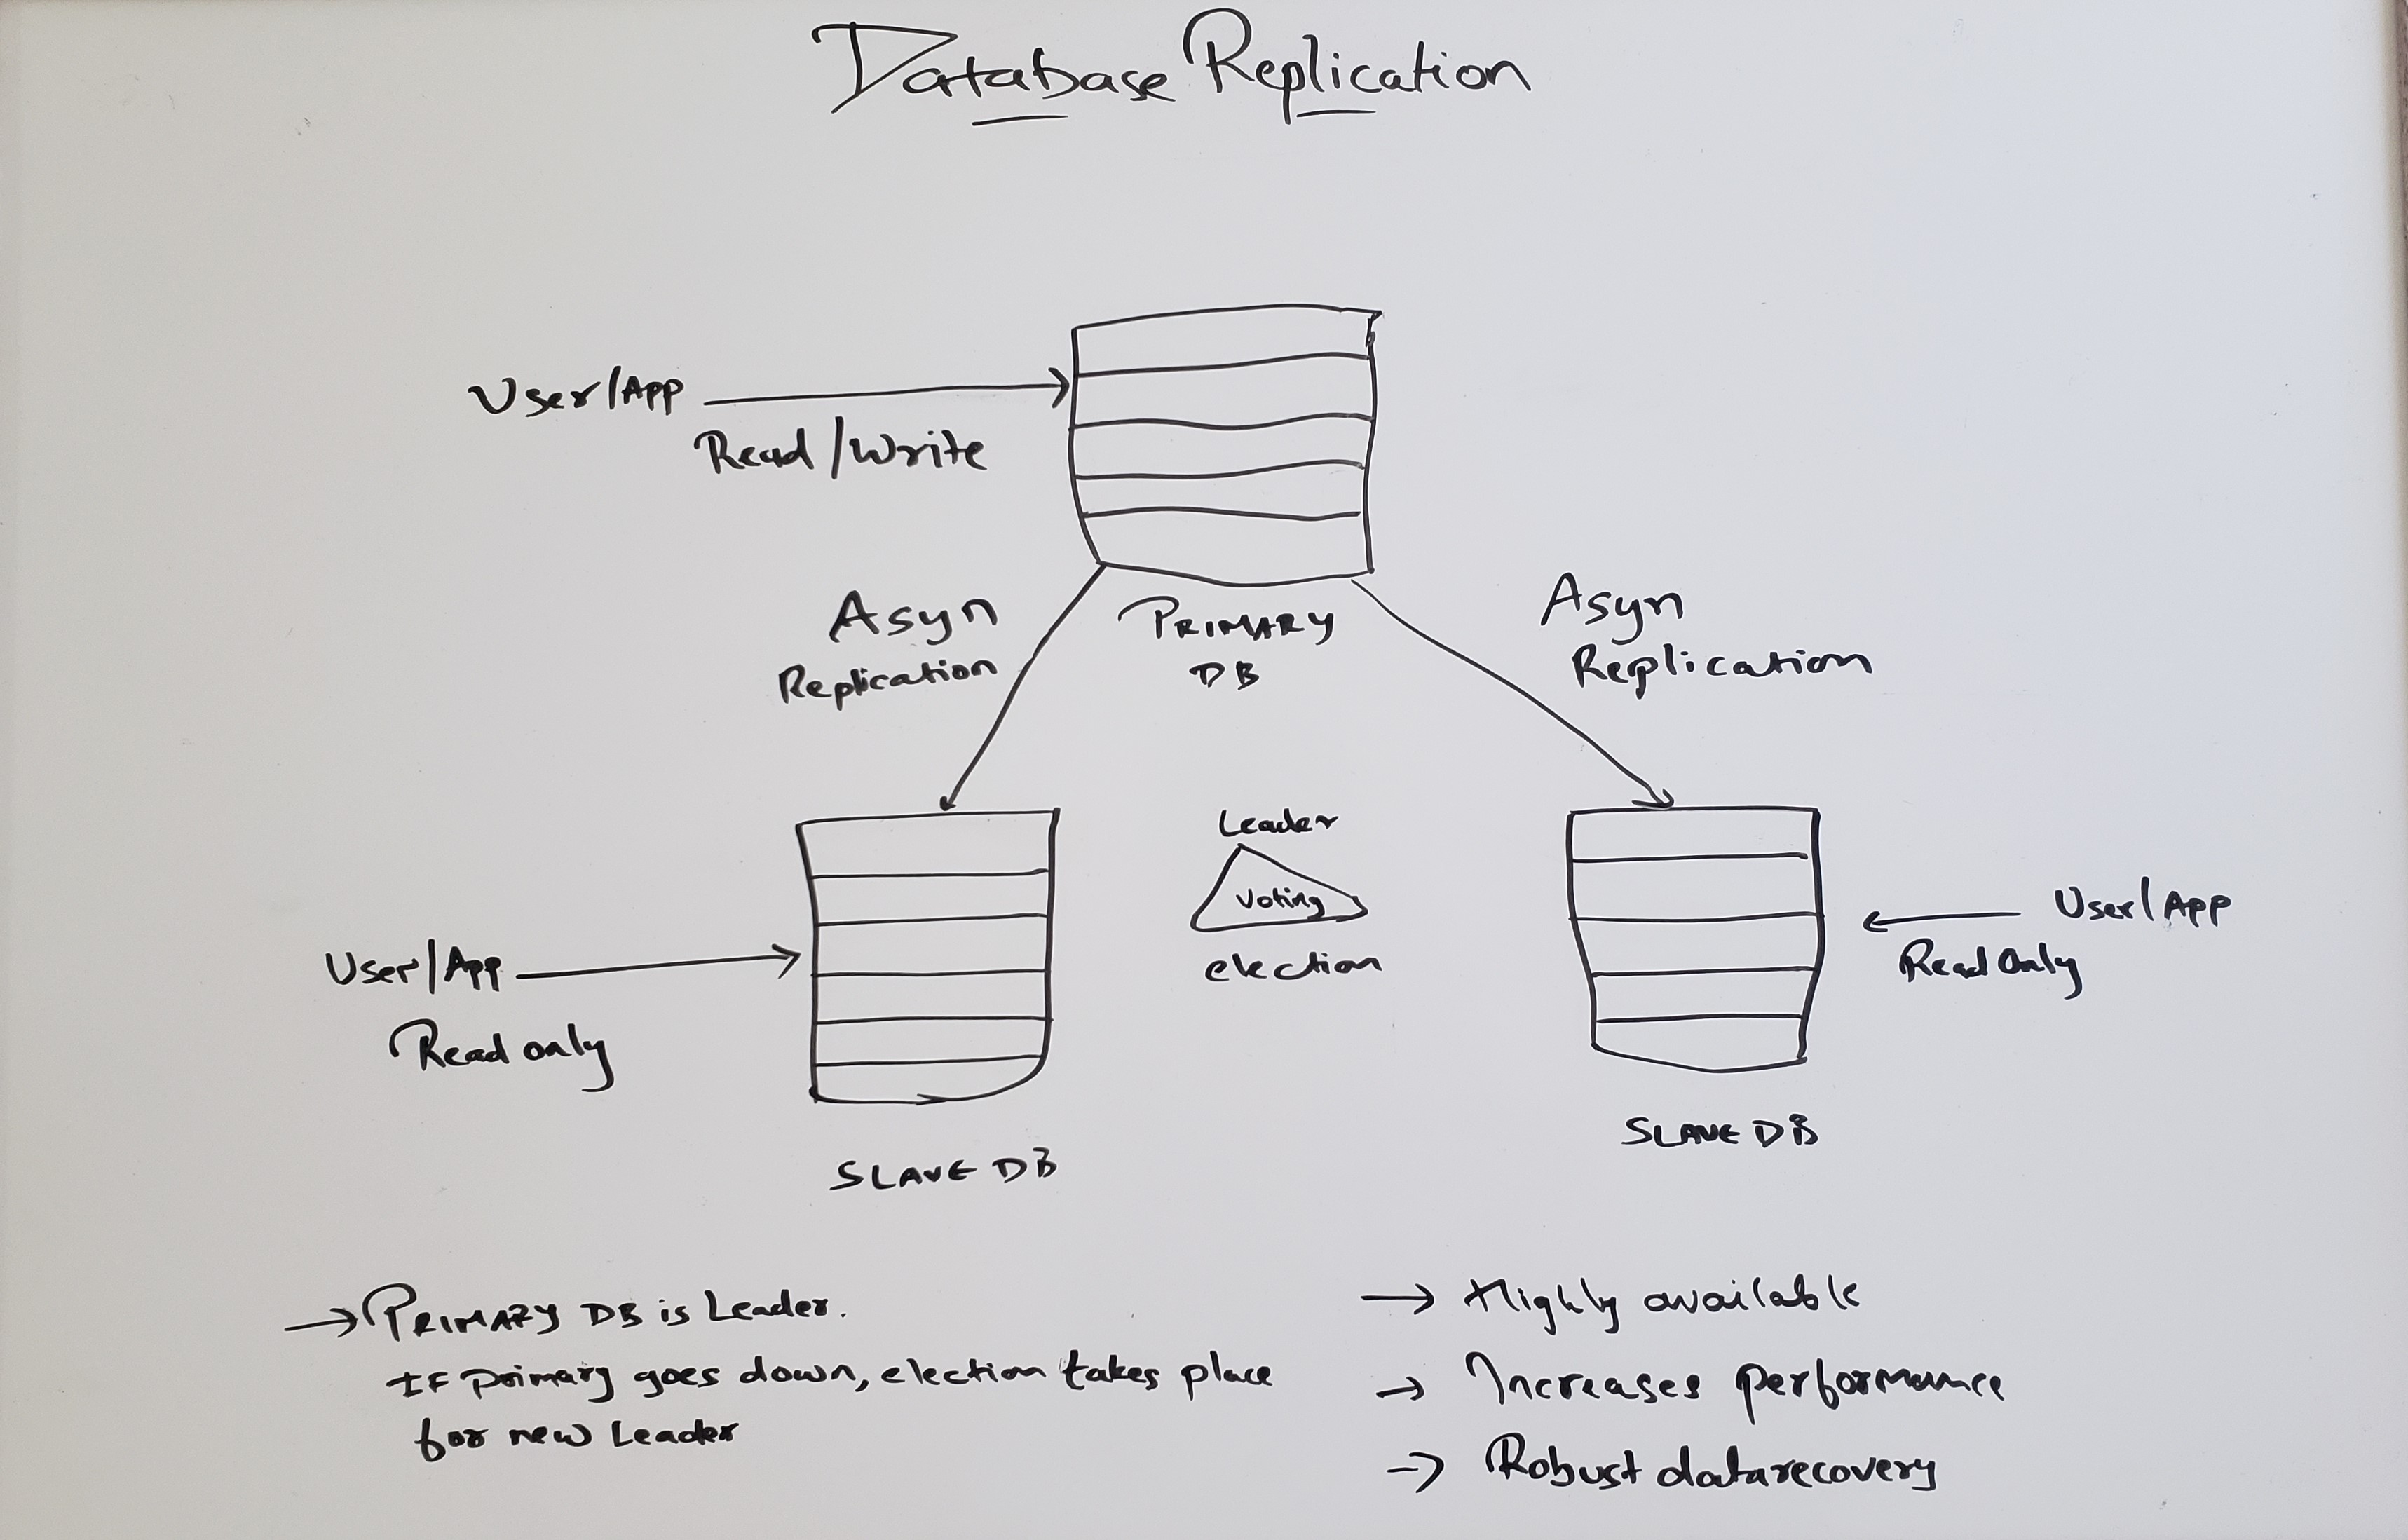 Database Replication
User/App
Read/Write
Asyn
Replication
PRIMARY
DB
Asyn
Replication
Leader
Voting
election
User/App
Read only
User/App
Read Only
SLAVE DB
SLAVE DB
→ PRIMARY DB is Leader.
IF primary goes down, election takes place
for new Leader
→ Highly available
→ Increases performance
→ Robust datarecovery